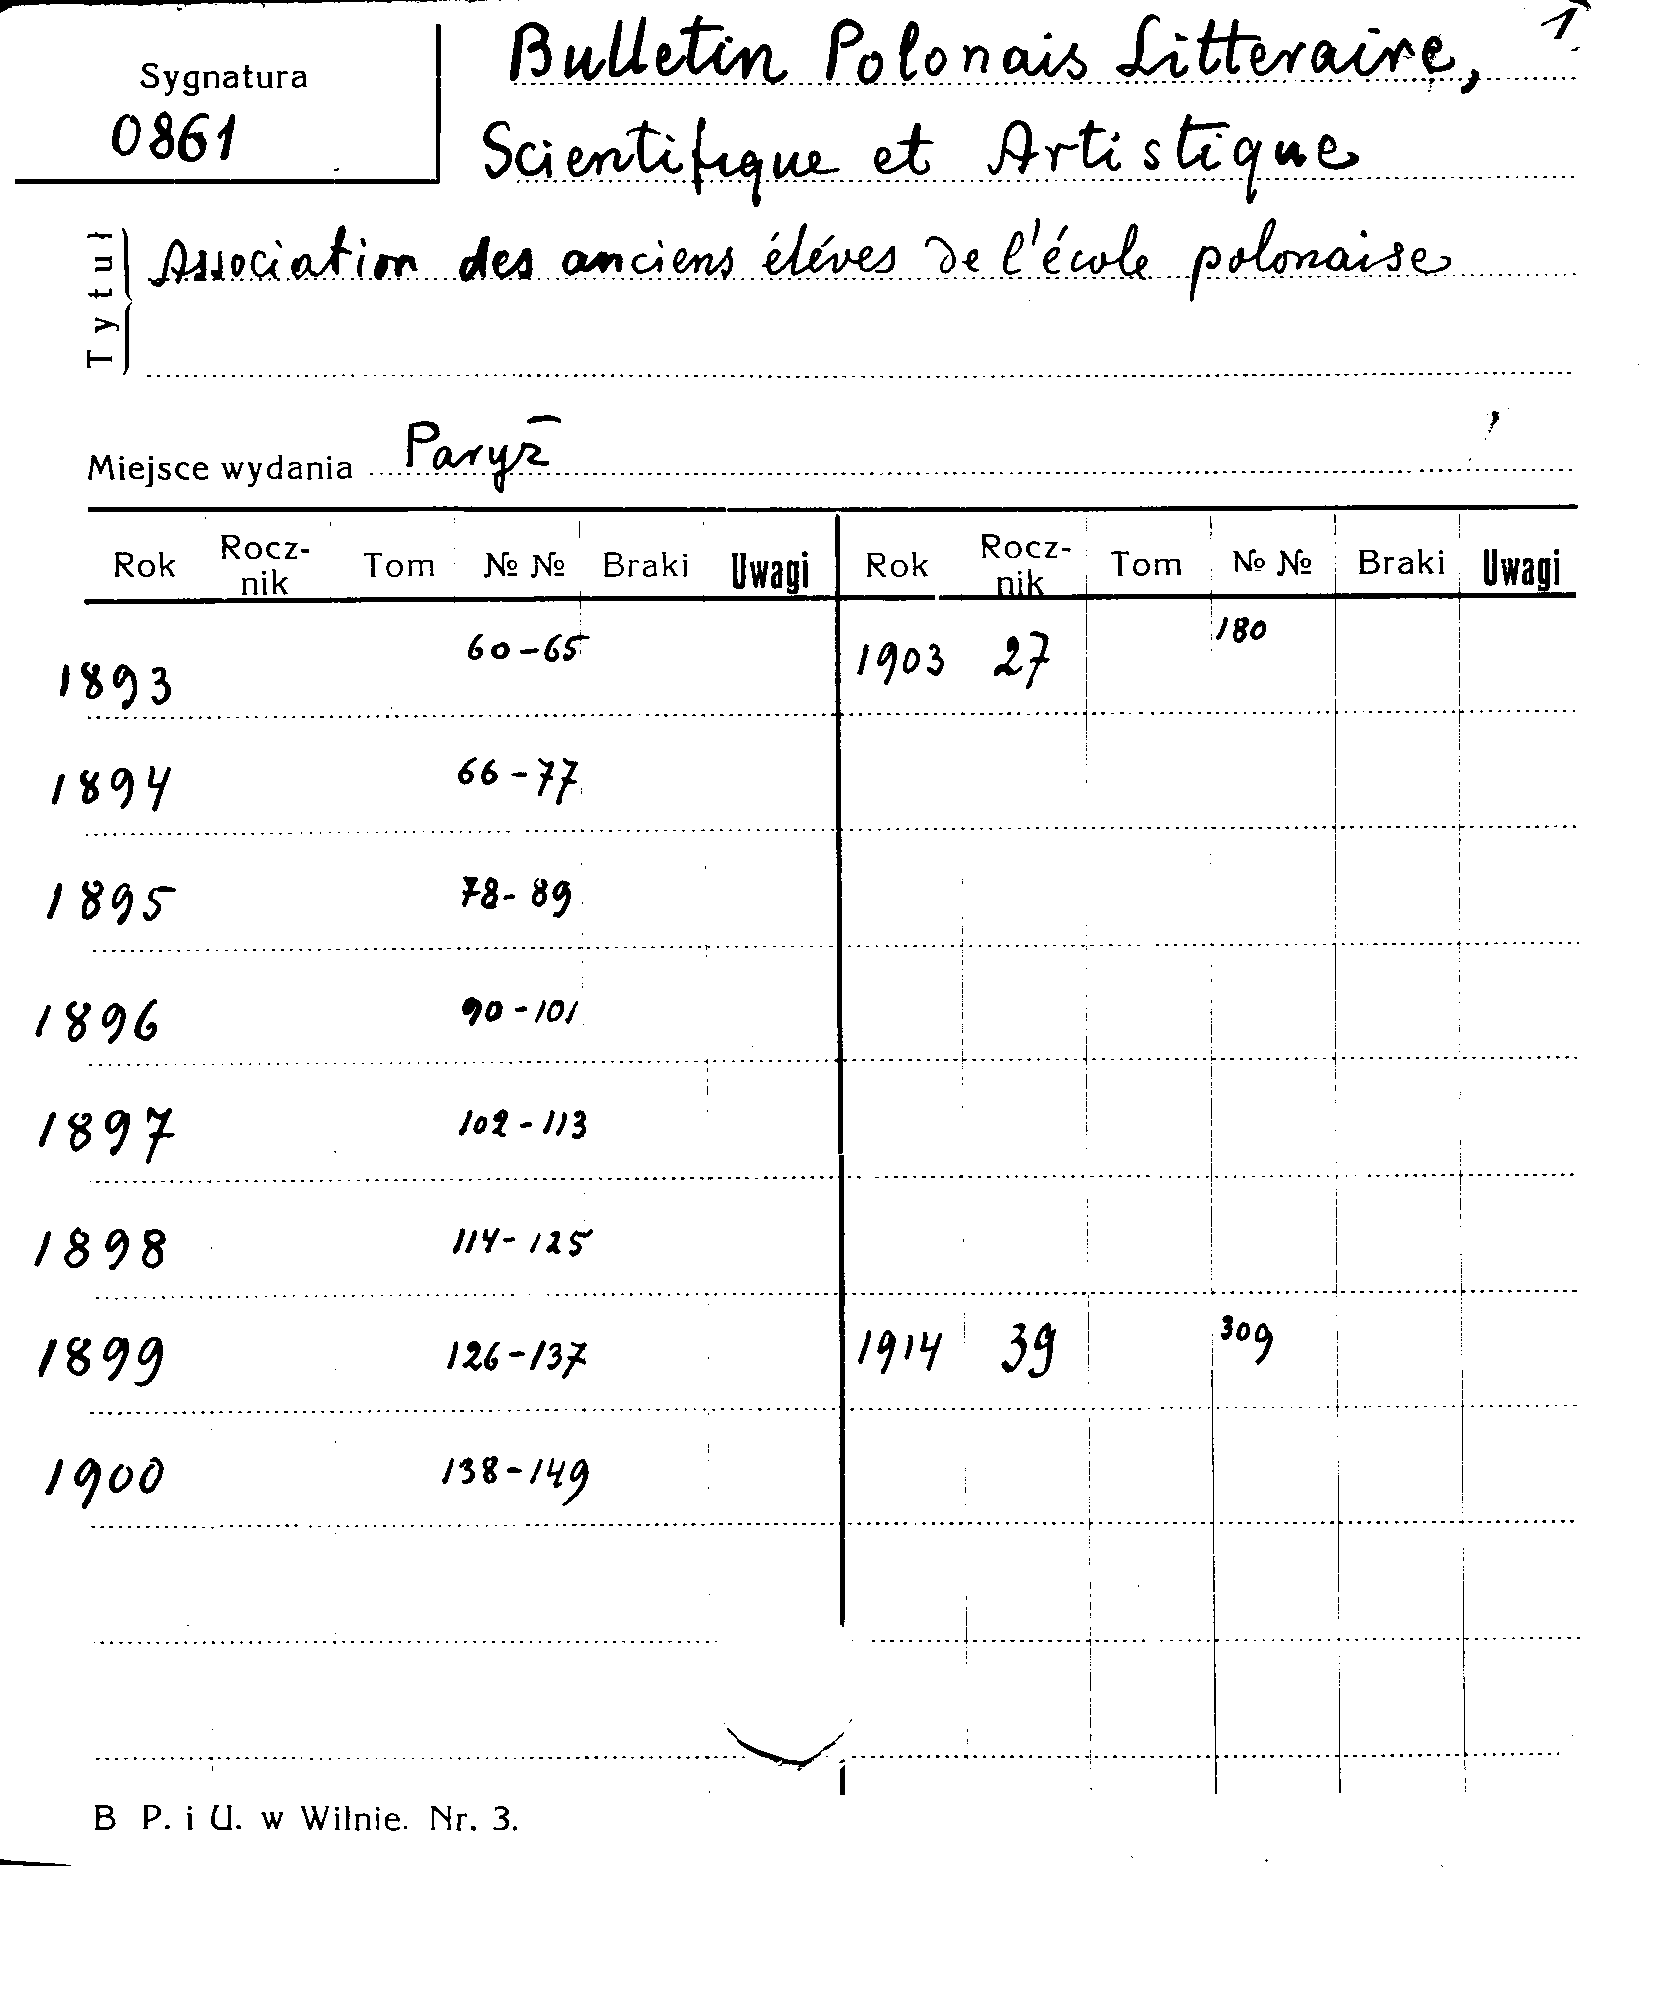 1.
Bulletin Polonais Litteraire,
Sygnatura
0861
Scientifique et Artistique
Tytuł
Association des anciens éléves de l'école polonaise
Miejsce wydania Paryż
Rok Rocz-nik Tom № № Braki Uwagi Rok Rocz-nik Tom № № Braki Uwagi
1893 60-65 1903 27 180
1894 66-77
1895 78-89
1896 90-101
1897 102-113
1898 114-125
1899 126-137 1914 39 309
1900 138-149
B P. i U. w Wilnie. Nr. 3.